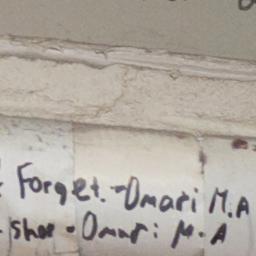 Forget. - Omari M.A
shoe - Omari M.A